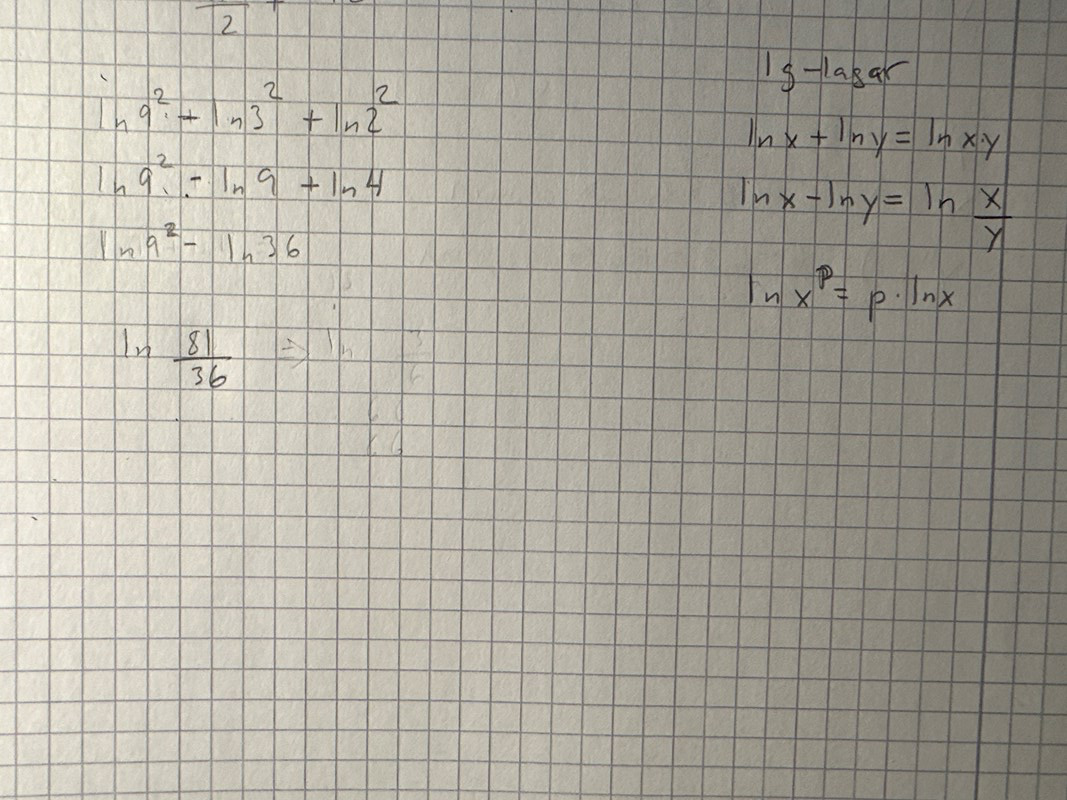 2
ln 9² + ln 3² + ln 2²
ln 9² - ln 9 + ln 4
ln 9² - ln 36
ln 81/36 ⇒ ln
lg-lagar
ln x + ln y = ln x·y
ln x - ln y = ln x/y
ln xᵖ = p · ln x